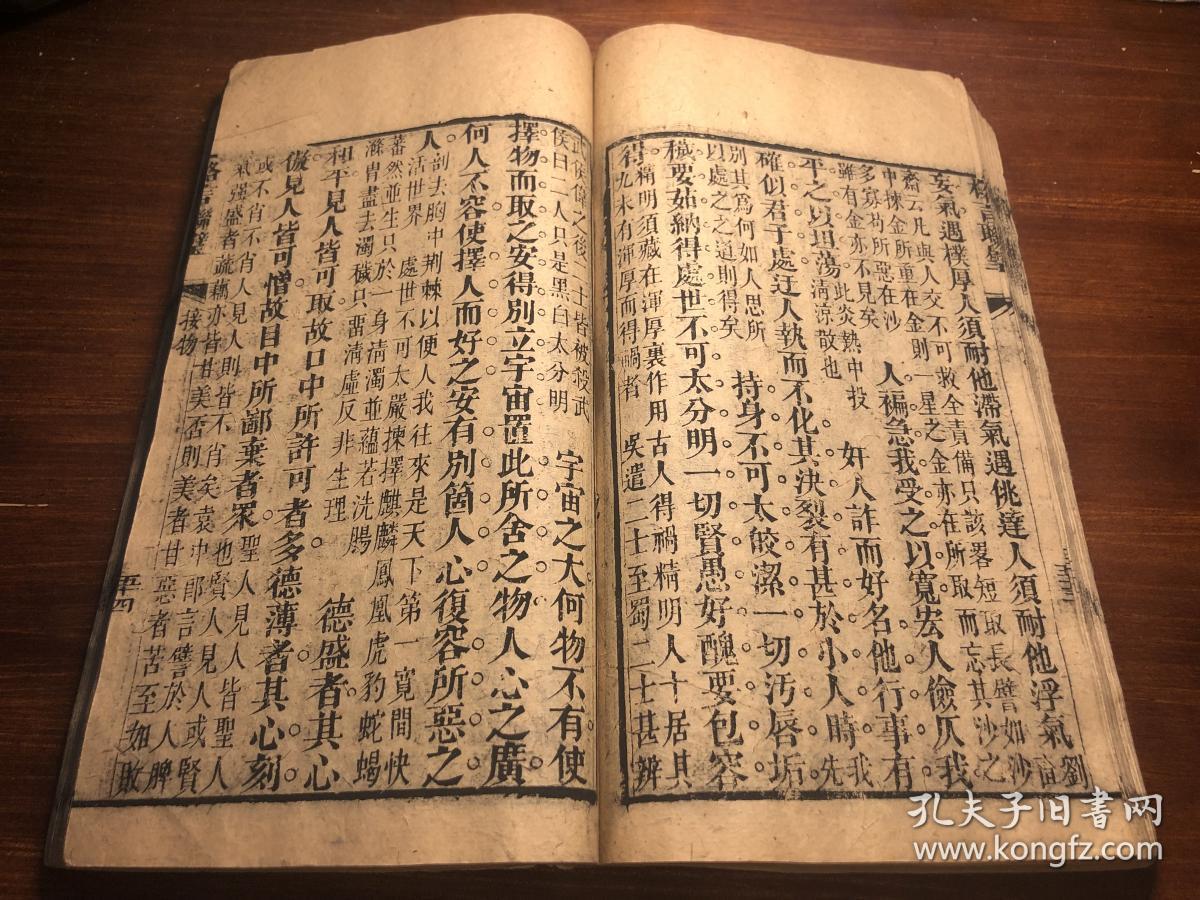 妄氣遇樸厚人須耐他滯氣遇佻達人須耐他浮氣劉
齋云凡與人交不可求全責備只該畧短取長譬如沙
中揀金所重在金則一星之金亦在所取而忘其沙之
多寡苟所惡在沙
雖有金亦不見矣
人褊急我受之以寬宏人儉仄我
平之以坦蕩
此炎熱中投
清涼散也
奸人詐而好名他行事有
確似君子處迂人執而不化其決裂有甚於小人時
我
先
別其爲何如人思所
以處之之道則得矣
持身不可太皎潔一切汚辱垢
穢要茹納得處世不可太分明一切賢愚好醜要包容
得
精明須藏在渾厚裏作用古人得禍精明人十居其
九未有渾厚而得禍者 吳遣二士至蜀二士甚辨
武侯偉之後二士皆被殺武
侯曰二人只是黑白太分明
宇宙之大何物不有使
擇物而取之安得別立宇宙置此所舍之物人心之廣
何人不容使擇人而好之安有別箇人心復容所惡之
人
剖去胸中荆棘以便人我往來是天下第一寬間快
活世界 處世不可太嚴揀擇麒麟鳳凰虎豹蛇蝎
蕃然並生只於一身清濁並蘊若洗腸
滌胃盡去濁穢只畱清虛反非生理
德盛者其心
和平見人皆可取故口中所許可者多德薄者其心刻
傲見人皆可憎故目中所鄙棄者衆
聖人見人皆聖人也賢人見人或賢
或不肖不肖人見人則皆不肖矣袁中郎言譬於人脾
氣强盛者蔬糲亦皆甘美否則美者甘惡者苦至如敗
格言聯璧
接物
五十四
孔夫子旧書网
www.kongfz.com